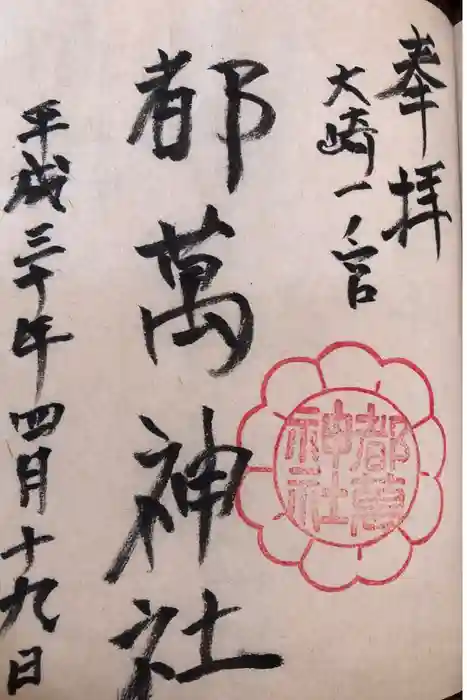 奉拝
大崎一ノ宮
都萬神社
都萬
神社
平成三十年四月十九日